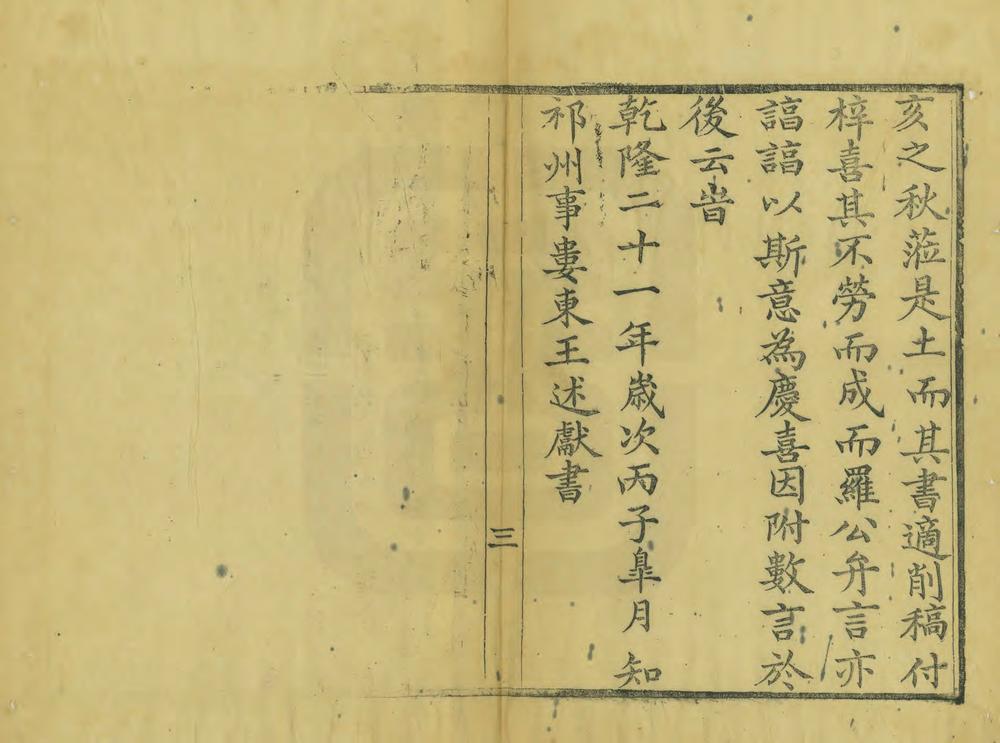 亥之秋蒞是土而其書適削稿付
梓喜其不勞而成而羅公弁言亦
諄諄以斯意為慶喜因附數言於
後云旹
乾隆二十一年歲次丙子臯月 知
祁州事婁東王述獻書
三